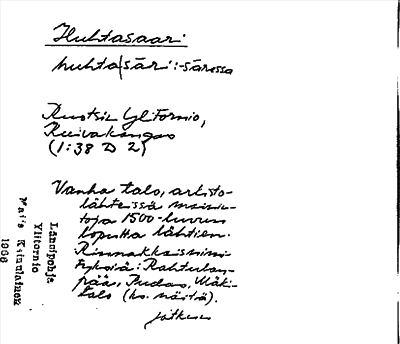 Huhtasaari
huhta|sāri : -sāressa
Ruotsi Ylitornio,
Kuivakangas
(1:38 D 2)
Vanha talo, arkisto-
lähteissä mainin-
toja 1500-luvun
lopulta lähtien.
Rinnakkaisnimi-
tyksiä: Rahtulan-
pää, Pudas, Mäki-
talo (ks. näitä).
jatkuu
Länsipohja
Ylitornio
Maija Kinulainen
1966